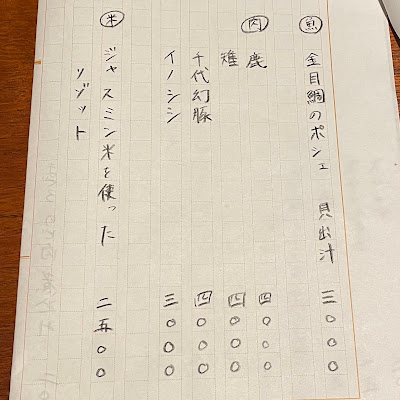 魚
金目鯛のポシェ 貝出汁 三〇〇〇
肉
鹿 四〇〇〇
雉 四〇〇〇
千代幻豚 四〇〇〇
イノシシ 三〇〇〇
米
ジャスミン米を使った 二五〇〇
リゾット